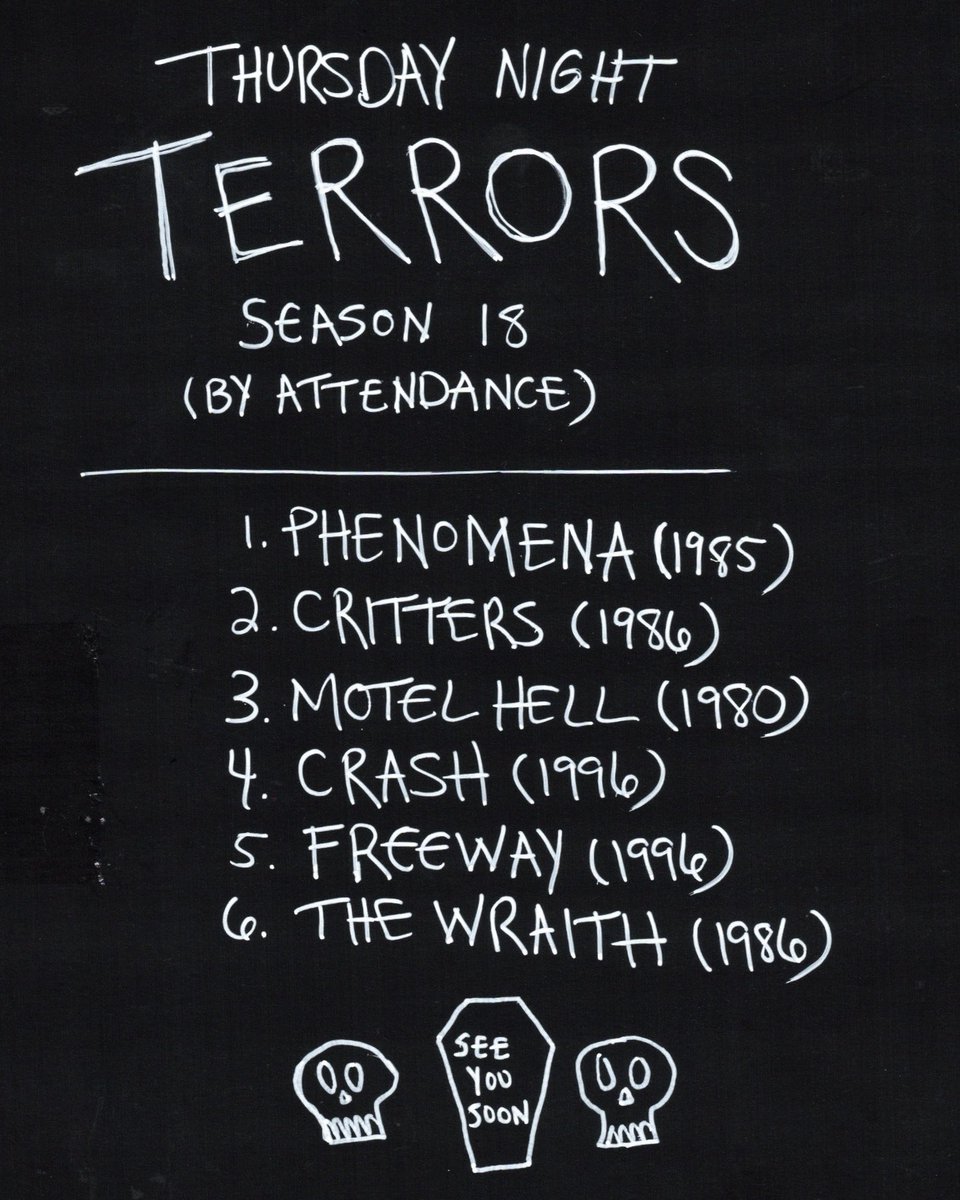 THURSDAY NIGHT
TERRORS
SEASON 18
(BY ATTENDANCE)
1. PHENOMENA (1985)
2. CRITTERS (1986)
3. MOTEL HELL (1980)
4. CRASH (1996)
5. FREEWAY (1996)
6. THE WRAITH (1986)
SEE
YOU
SOON